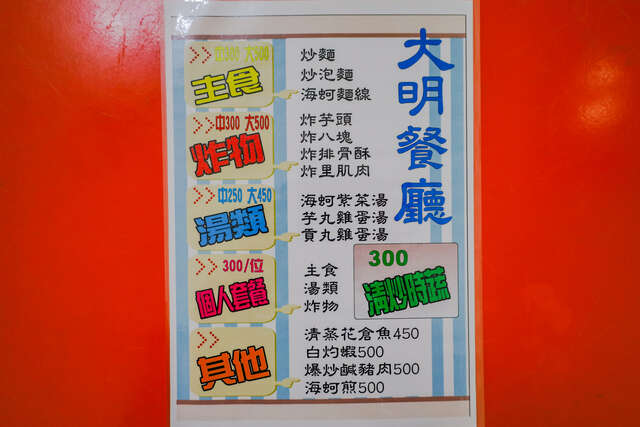 大明餐廳
主食
炒麵
炒泡麵
海蚵麵線
中300 大500
炸物
炸芋頭
炸八塊
炸排骨酥
炸里肌肉
中250 大450
湯類
海蚵紫菜湯
芋丸雞蛋湯
貢丸雞蛋湯
300/位
個人套餐
主食
湯類
炸物
300
清炒時蔬
其他
清蒸花倉魚450
白灼蝦500
爆炒鹹豬肉500
海蚵煎500